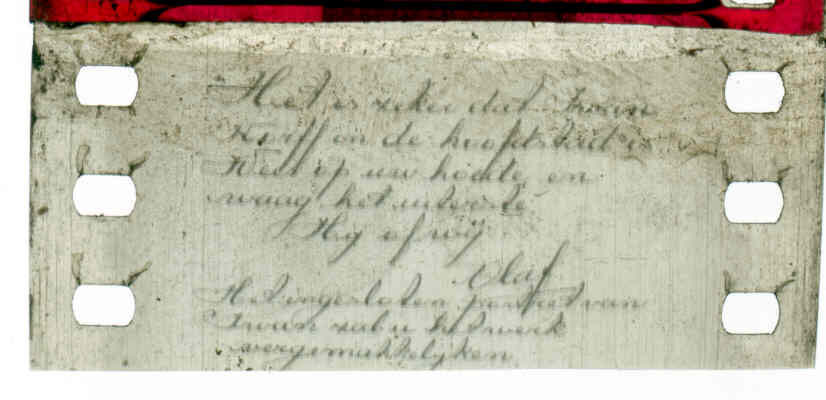 Het is zeker dat Iwan
Korff in de hoofdstad is
Weest op uw hoede, en
waag het uiterste.
Hij of wij
Olaf
Het ingesloten portret van
Iwan zal u het werk
vergemakkelijken.